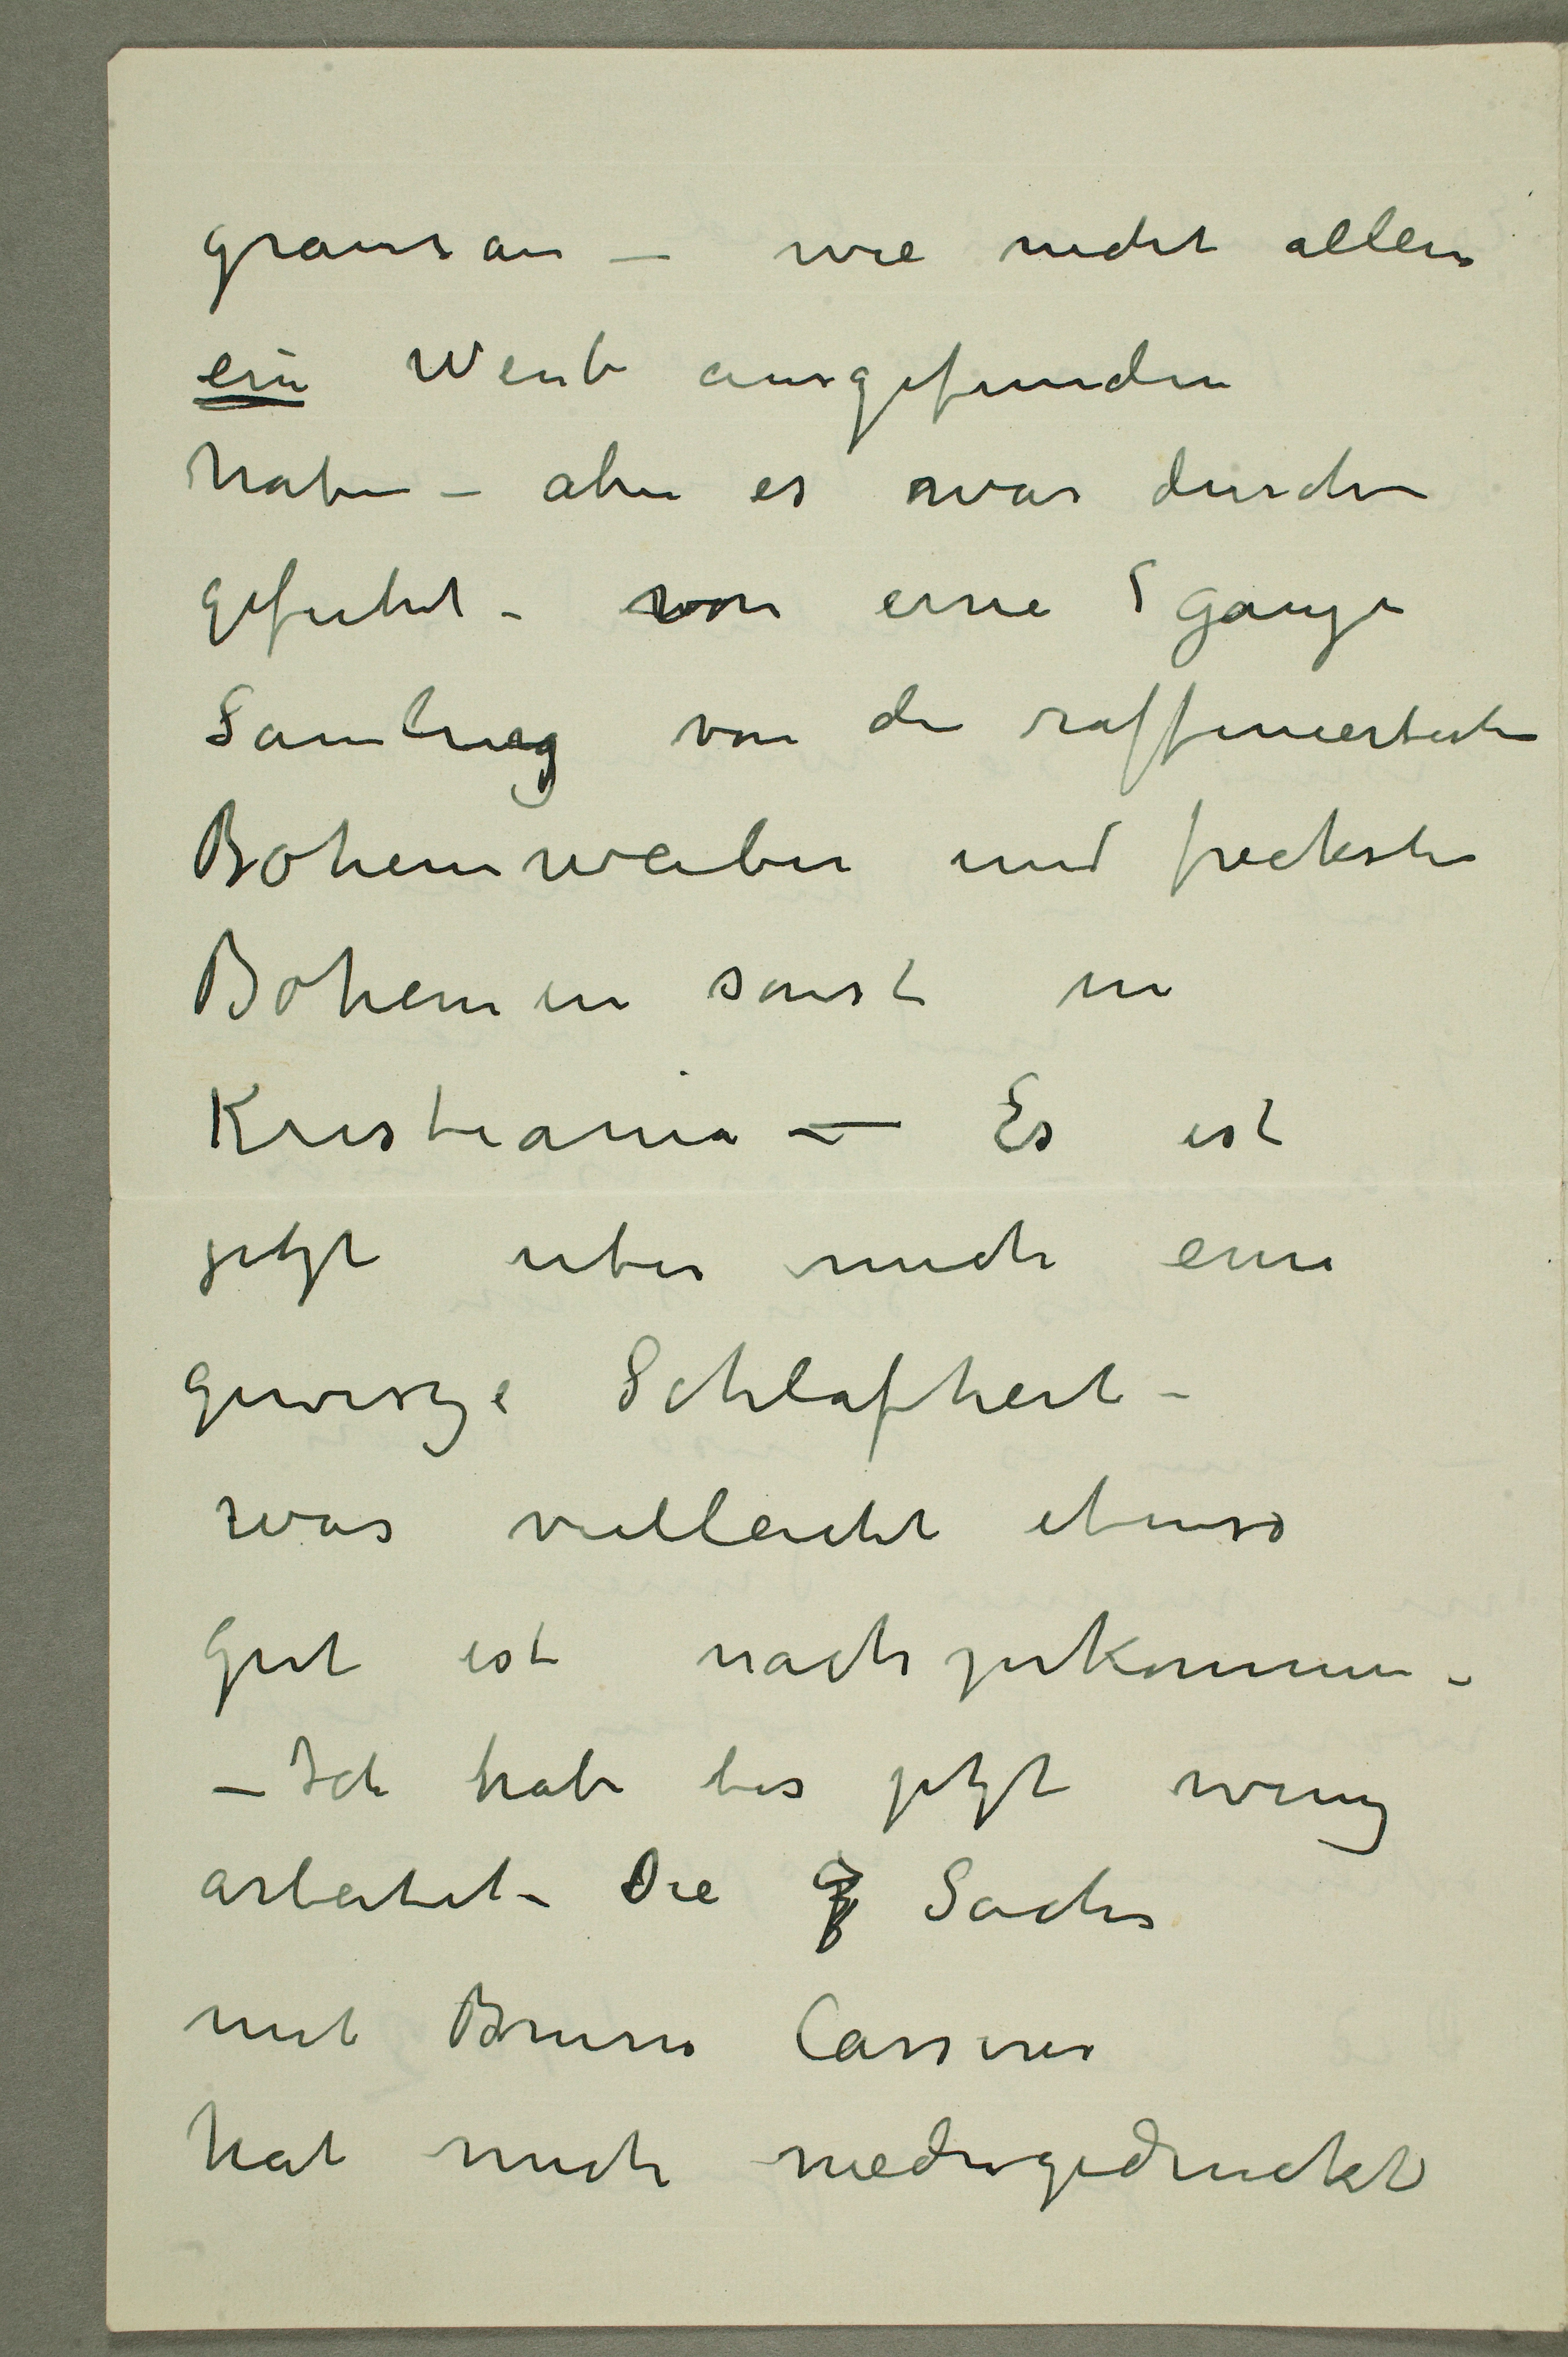 grausam – wie nicht allein
ein Weib ausgefunden
haben – aber es war durch
gefuhrt – von eine ganze
Samlung von den raffiniertesten
Bohemweiber und frecksten
Bohemien sonst in
Kristiania – Es ist
jetzt uber mich eine
gewisze Schlafheit –
was vielleicht ebenso
gut ist nachzukommen –
– Ich habe bis jetzt wenig
arbeitet – Die Sache
mit Bruno Cassirer
hat mich niedergedruckt